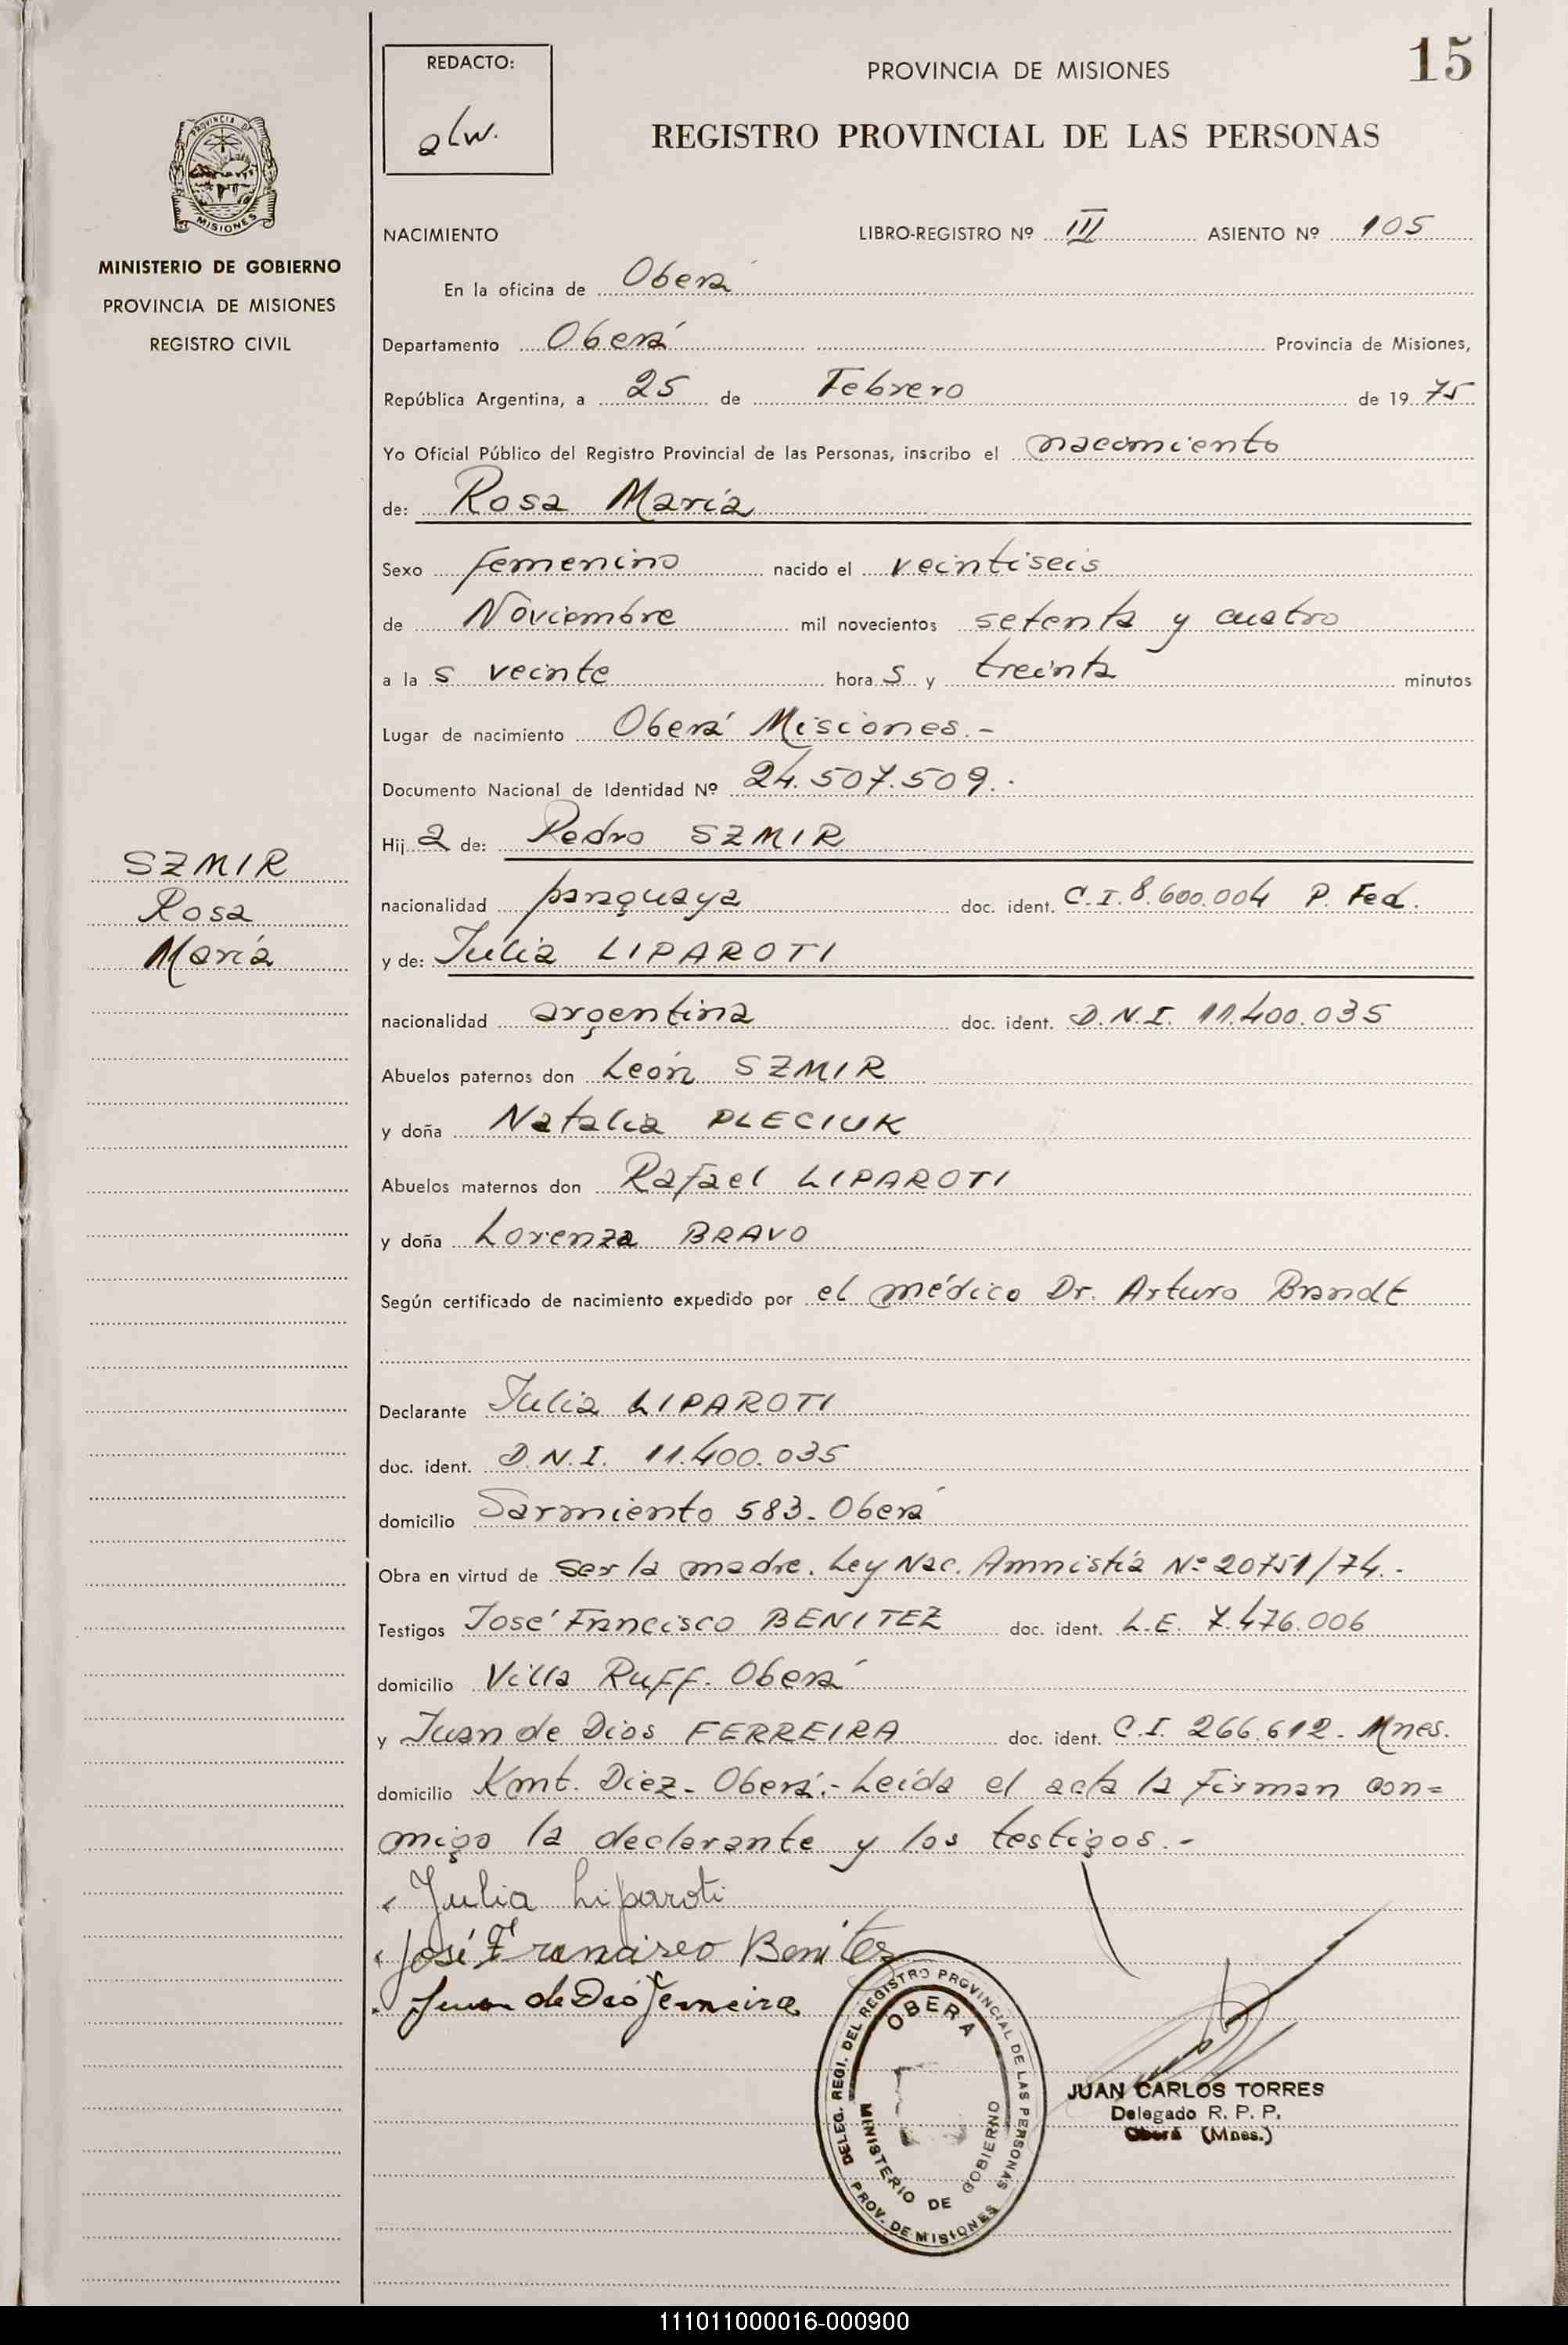 REDACTO:
alw.
PROVINCIA DE MISIONES
15
REGISTRO PROVINCIAL DE LAS PERSONAS
PROVINCIA DE
MISIONES
MINISTERIO DE GOBIERNO
PROVINCIA DE MISIONES
REGISTRO CIVIL
NACIMIENTO LIBRO-REGISTRO Nº III ASIENTO Nº 105
En la oficina de Oberá
Departamento Oberá Provincia de Misiones,
República Argentina, a 25 de Febrero de 1975
Yo Oficial Público del Registro Provincial de las Personas, inscribo el nacimiento
de: Rosa María
Sexo femenino nacido el veintiseis
de Noviembre mil novecientos setenta y cuatro
a la s veinte hora s y treinta minutos
Lugar de nacimiento Oberá Misiones.-
Documento Nacional de Identidad Nº 24.507.509.-
Hij a de: Pedro SZMIR
SZMIR
Rosa
María
nacionalidad paraguaya doc. ident. C.I. 8.600.004 P. Fed.
y de: Julia LIPAROTI
nacionalidad argentina doc. ident. D.N.I. 11.400.035
Abuelos paternos don León SZMIR
y doña Natalia PLECIUK
Abuelos maternos don Rafael LIPAROTI
y doña Lorenza BRAVO
Según certificado de nacimiento expedido por el médico Dr. Arturo Brandt
Declarante Julia LIPAROTI
doc. ident. D.N.I. 11.400.035
domicilio Sarmiento 583. Oberá
Obra en virtud de ser la madre. Ley Nac. Amnistía Nº 20751/74.-
Testigos José Francisco BENITEZ doc. ident. L.E. 7.476.006
domicilio Villa Ruff. Oberá
y Juan de Dios FERREIRA doc. ident. C.I. 266.612. Mnes.
domicilio Kmt. Diez- Oberá.- Leída el acta la firman con=
migo la declarante y los testigos.-
Julia Liparoti
José Francisco Benitez
Juan de Dio Ferreira
DELEG. REGI. DEL REGISTRO PROVINCIAL DE LAS PERSONAS
OBERA
MINISTERIO DE GOBIERNO
PROV. DE MISIONES
JUAN CARLOS TORRES
Delegado R. P. P.
Oberá (Mnes.)
111011000016-000900